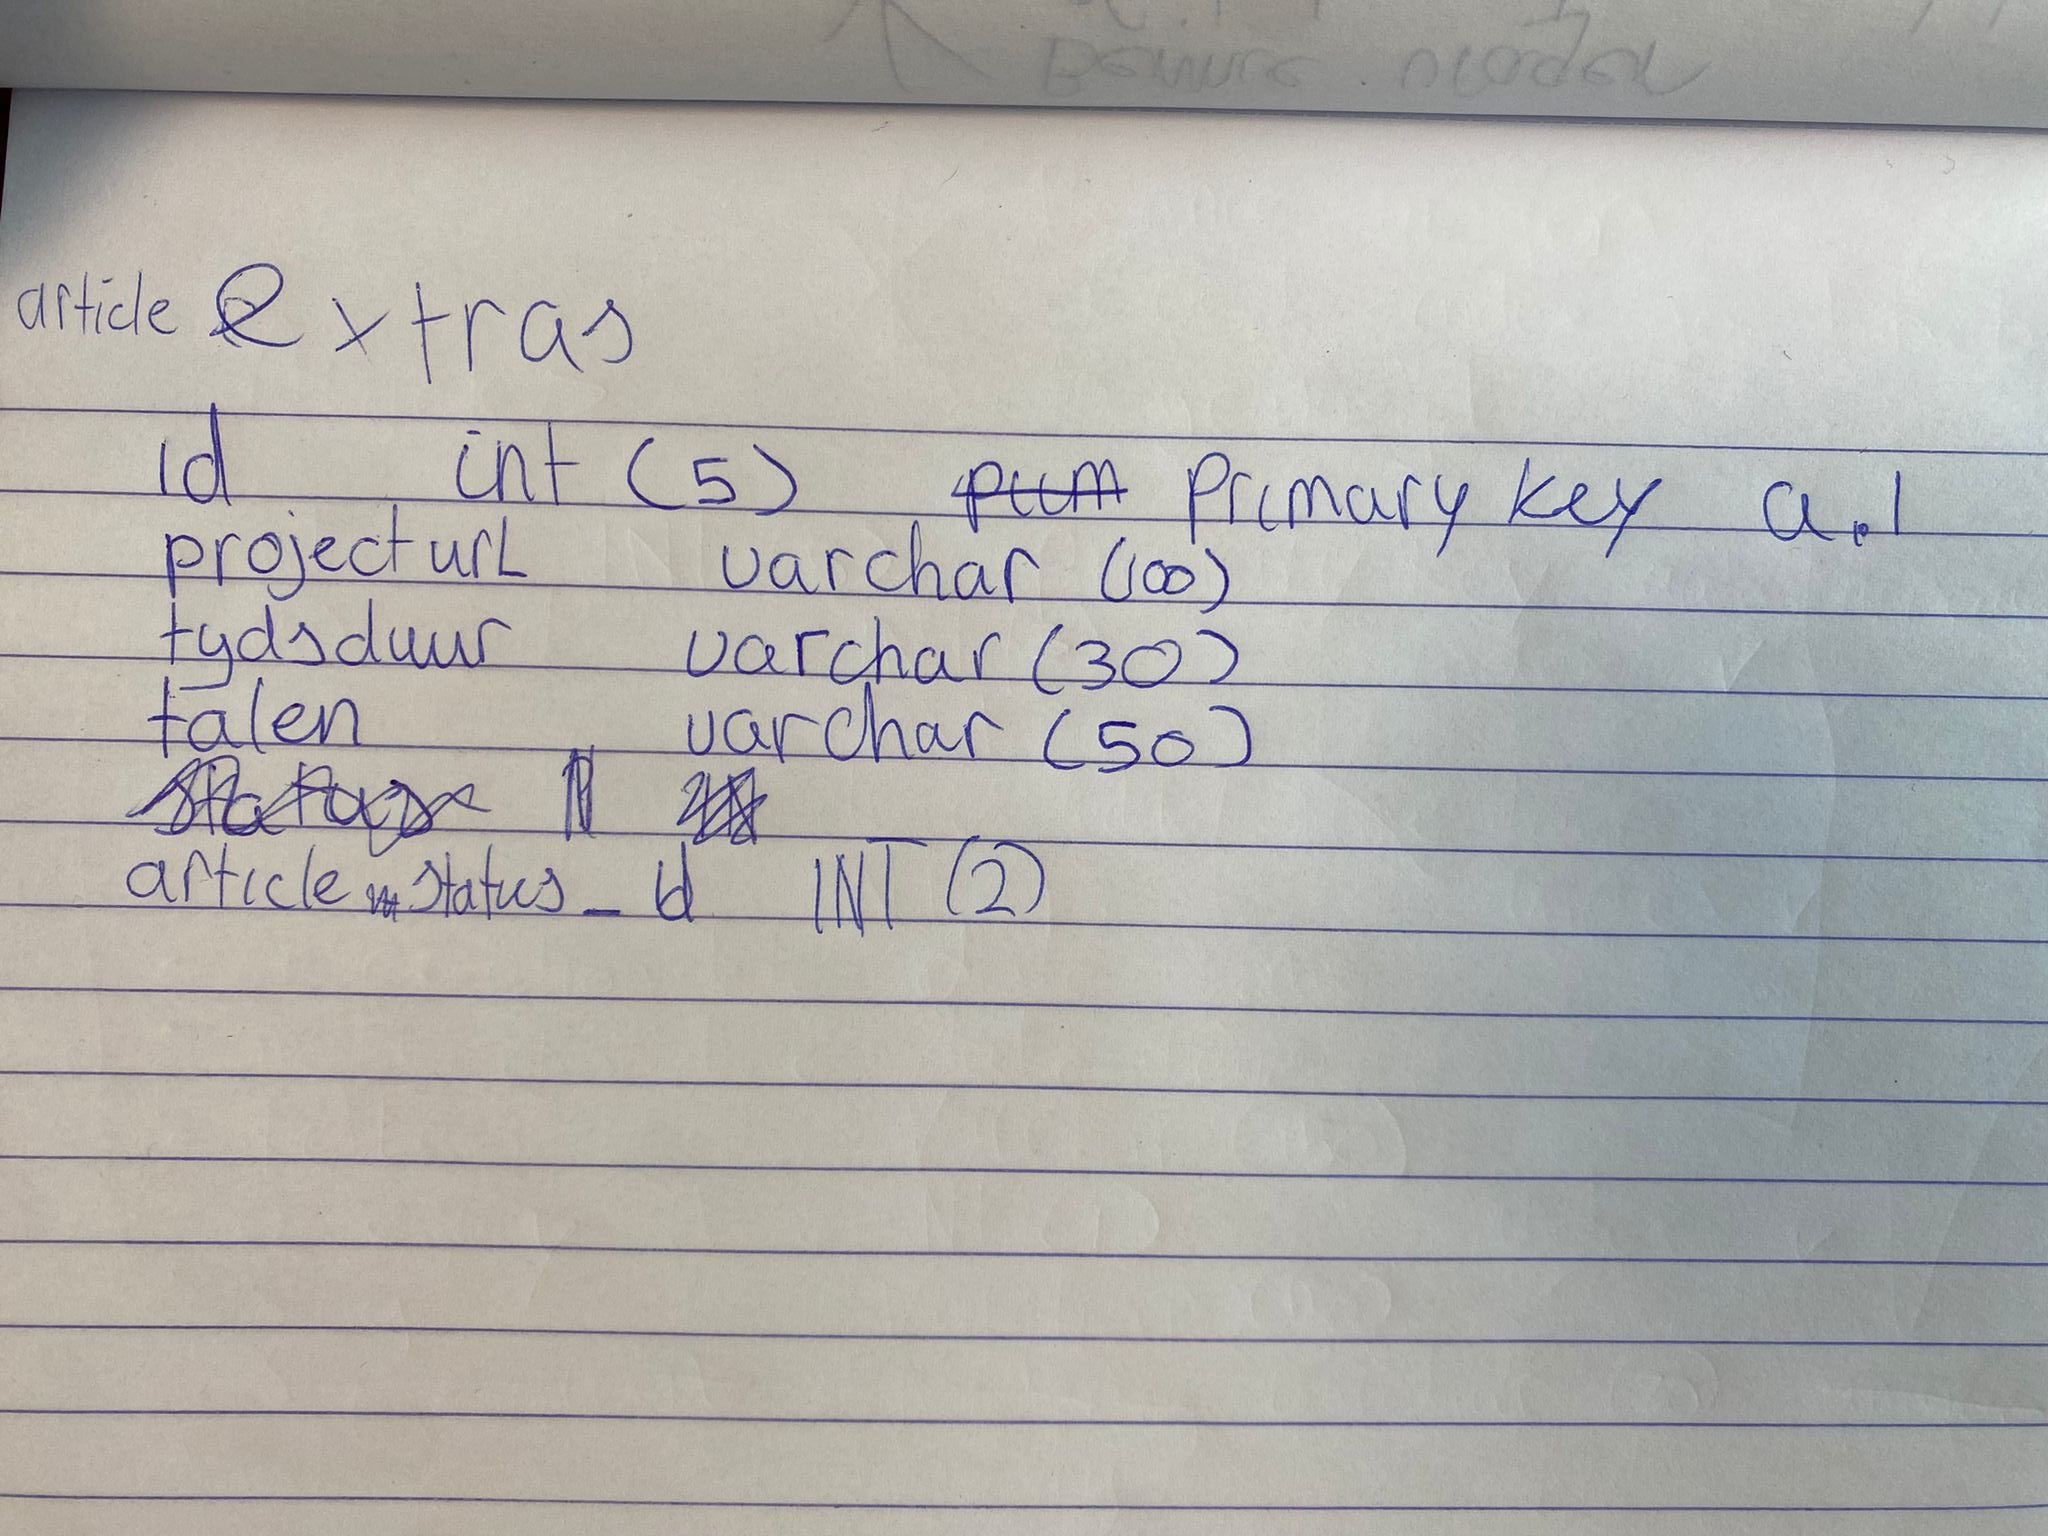 article Extras
id int (5) Primary key a.I
projecturL varchar (100)
tydsduur varchar (30)
talen varchar (50)
article status_id INT (2)